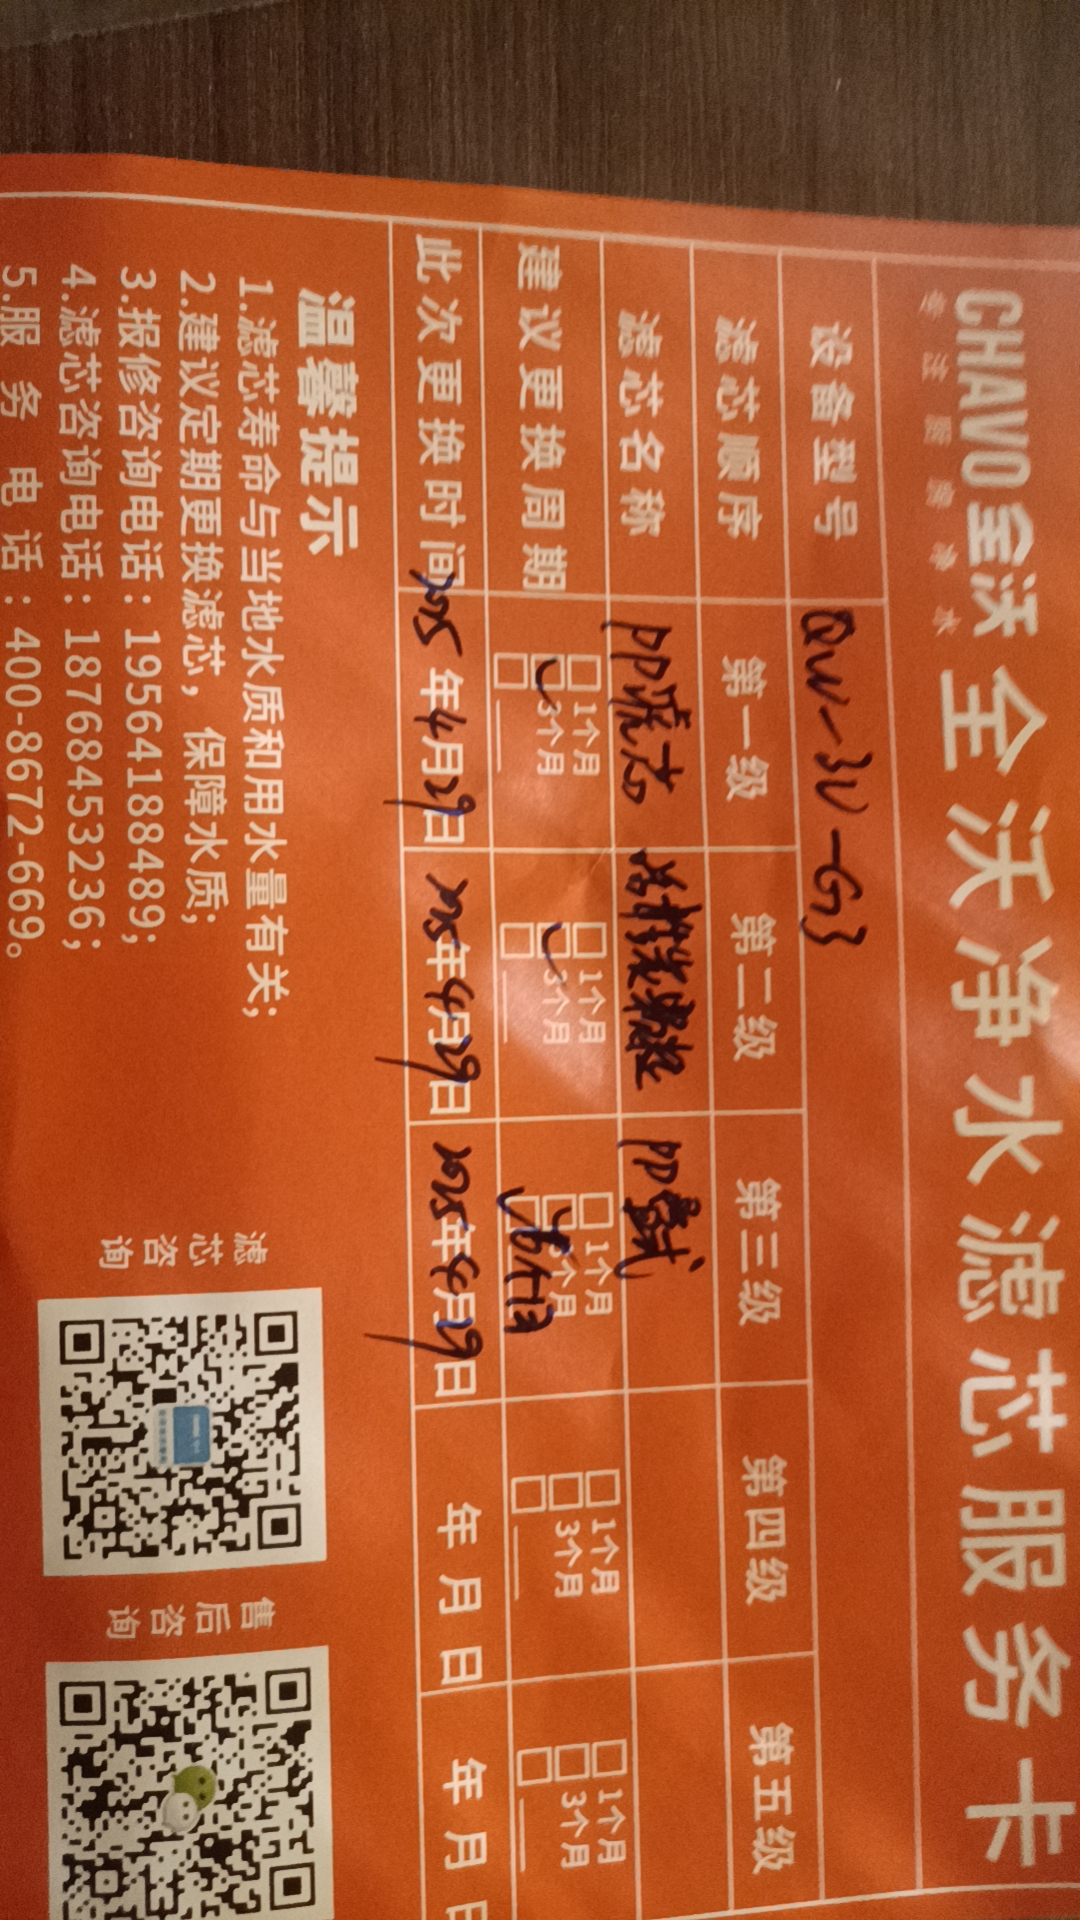 CHAVO全沃 全沃净水滤芯服务卡
专注厨房净水
设备型号
滤芯顺序 第一级 第二级 第三级 第四级 第五级
滤芯名称 PP滤芯
建议更换周期 □1个月 □3个月 □ □1个月 □3个月 □ □1个月 □3个月 □ 6个月 □1个月 □3个月 □ □1个月 □3个月 □
此次更换时间 2025年4月29日 2025年4月29日 2025年4月29日 年 月 日 年 月 日
温馨提示
1.滤芯寿命与当地水质和用水量有关;
2.建议定期更换滤芯，保障水质;
3.报修咨询电话：19564188489;
4.滤芯咨询电话：18768453236;
5.服务电话：400-8672-669。
滤芯咨询
售后咨询